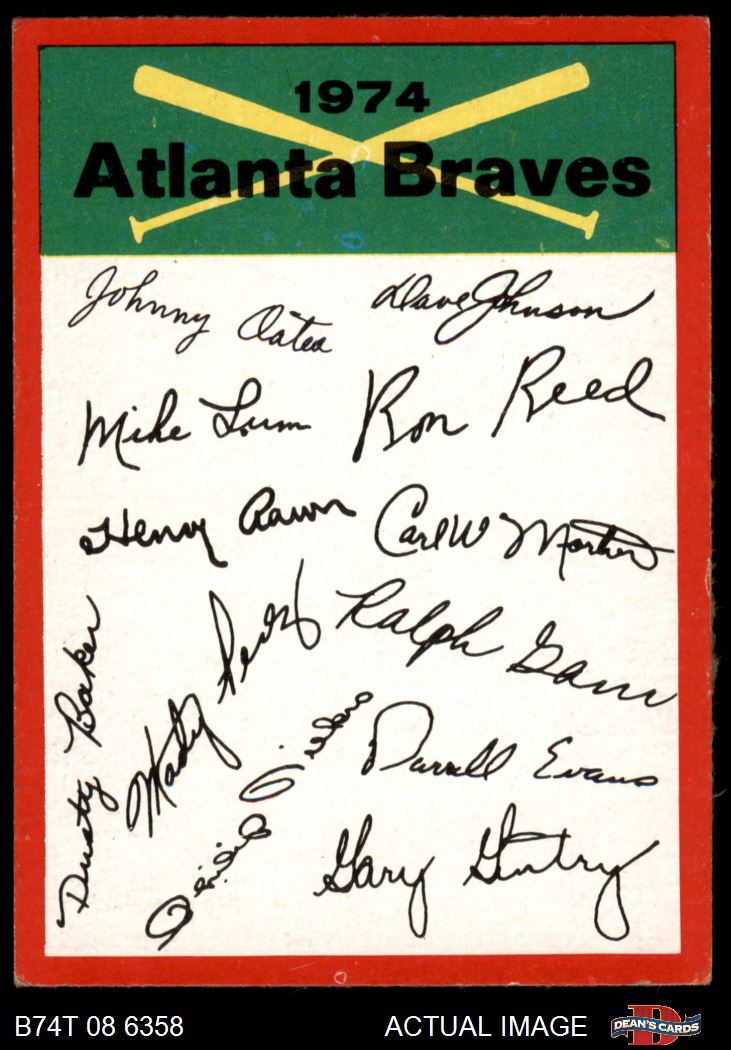 1974
Atlanta Braves
Johnny Oates
Dave Johnson
Mike Lum
Ron Reed
Henry Aaron
Carl W Morton
Dusty Baker
Marty Perez
Ralph Garr
Darrell Evans
Gary Gentry
B74T 08 6358
ACTUAL IMAGE
DEAN'S CARDS